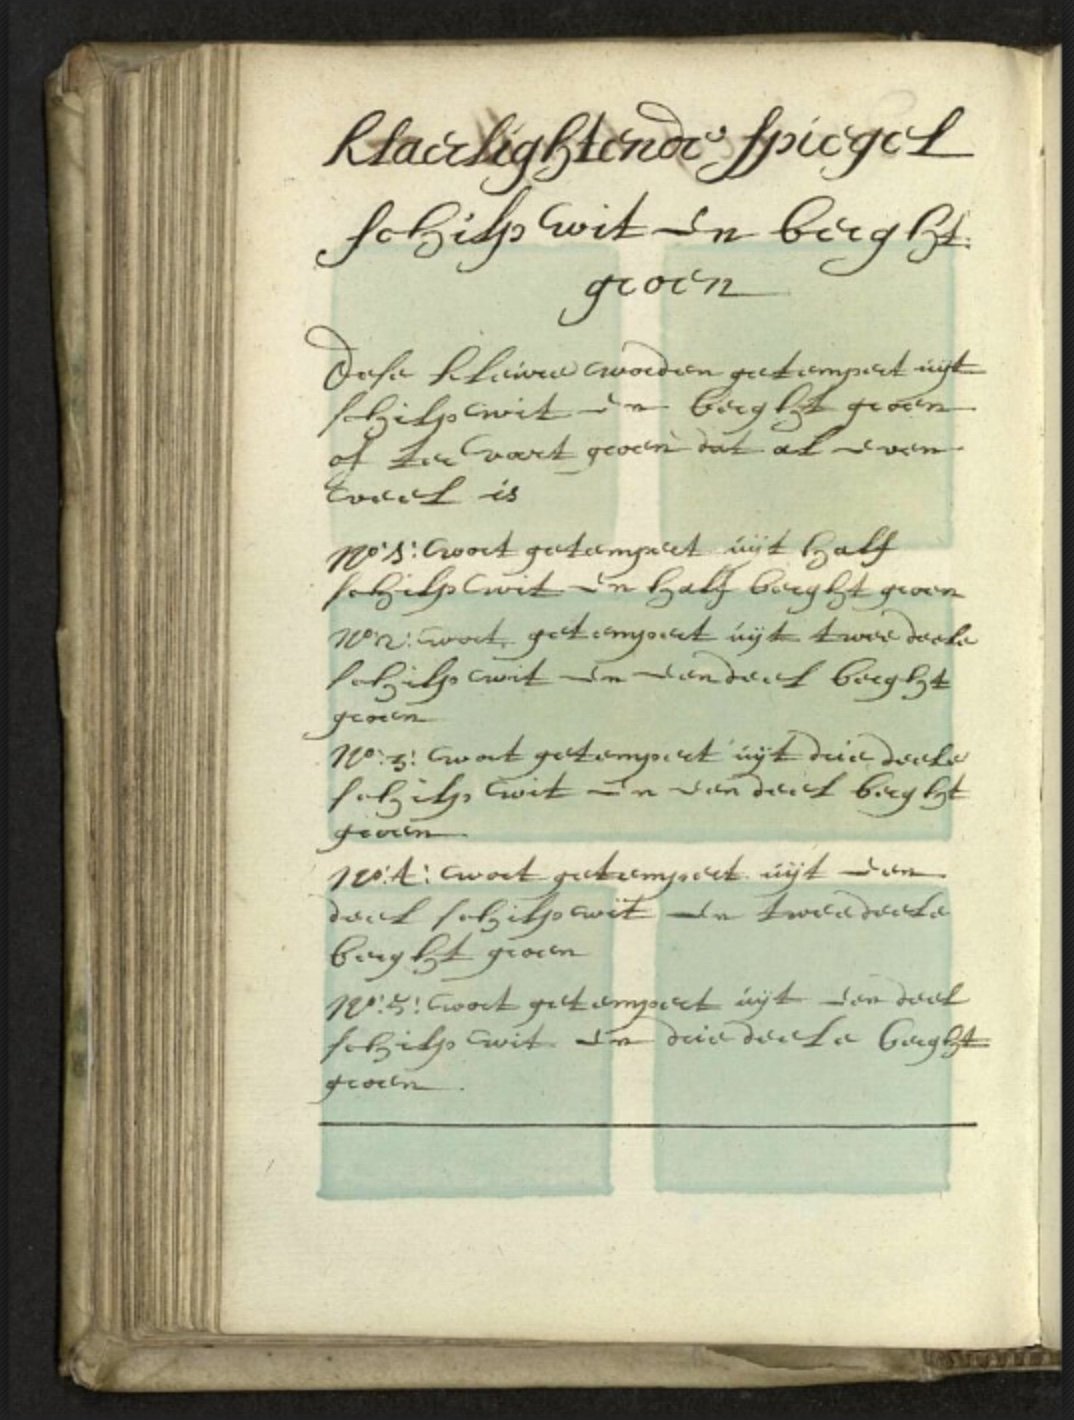 klaerlightende spiegel
schilp wit en berght
groen
Dese kleure worden getempert uijt
schilp wit en berght groen
of ter vaert groen dat al even
veel is
No: 1: wort getempert uijt half
schilp wit en half berght groen
No: 2: wort getempert uijt twee deele
schilp wit en een deel berght
groen
No: 3: wort getempert uijt drie deele
schilp wit en een deel berght
groen
No: 4: wort getempert uijt een
deel schilp wit en twee deele
berght groen
No: 5: wort getempert uijt een deel
schilp wit en drie deele berght
groen